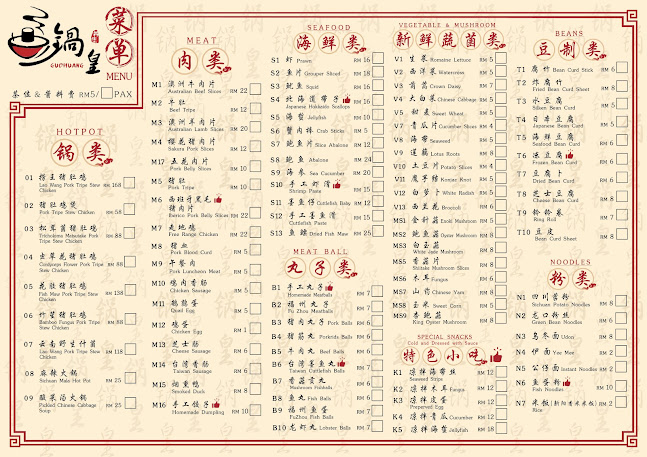 鍋皇
GUOHUANG
菜单
MENU
茶位&酱料费 RM5/ PAX
HOTPOT
锅类
01 Lao Wang Pork Tripe Stew Chicken RM 168
02 猪肚鸡煲
Pork Tripe Stew Chicken RM 58
03 松茸菌猪肚鸡
Stew Chicken RM 88
04 虫草花猪肚鸡
Stew Chicken RM 88
05 花胶猪肚鸡
Fish Maw Pork Tripe Stew Chicken RM 138
06 竹笙猪肚鸡
Bamboo Fungus Pork Tripe Stew Chicken RM 88
07 云南野生什菌
Lao Wang Pork Tripe Stew Chicken RM 118
08 麻辣火锅
Sichuan Mala Hot Pot RM 25
09 酸菜汤火锅
Pickled Chinese Cabbage Soup RM 25
MEAT
肉类
M1 澳洲牛肉片
Australian Beef Slices RM 22
M2 牛肚
Beef Tripe RM 12
M3 澳洲羊肉片
Australian Lamb Slices RM 20
M4 樱花猪肉片
Sakura Pork Slices RM 12
M17 五花肉片
Pork Belly Slices RM 10
M5 猪肚
Pork Tripe RM 10
M6 西班牙黑毛猪肉片
Iberico Pork Belly Slices RM 22
M7 走地鸡
Free Range Chicken RM 22
M8 猪血
Pork Blood Curd RM 5
M9 午餐肉
Pork Luncheon Meat RM 5
M10 鸡肉香肠
Chicken Sausage RM 6
M11 鹌鹑蛋
Quail Egg RM 5
M12 鸡蛋
Chicken Egg RM 1
M13 芝士肠
Cheese Sausage RM 6
M14 台湾香肠
Taiwan Sausage RM 6
M15 烟熏鸭
Smoked Duck RM 8
M16 手工饺子
Homemade Dumpling RM 10
SEAFOOD
海鲜类
S1 虾 Prawn RM 16
S2 鱼片 Grouper Sliced RM 18
S3 鱿鱼 Squid RM
S4 北海道带子
Japanese Hokkaido Scallops RM
S5 海蜇 Jellyfish RM 10
S6 蟹肉棒 Crab Sticks RM 5
S7 鲍鱼片 Slice Abalone RM 12
S8 鲍鱼 Abalone RM 24
S9 海参 Sea Cucumber RM 20
S10 手工虾滑
Shrimp Paste RM 15
S11 墨鱼仔 Cuttlefish Baby RM 12
S12 手工墨鱼滑
Cuttlefish Paste RM 15
S13 鱼鳔 Dried Fish Maw RM 25
MEAT BALL
丸子类
B1 手工丸子
Homemade Meatballs RM 7
B2 福州丸子
Fu Zhou Meatballs RM 7
B3 猪肉丸子 Pork Balls RM 6
B4 猪筋丸子 RM 7
B5 牛肉丸子 Beef Balls RM 7
B6 台湾墨鱼丸
Taiwan Cuttlefish Balls RM 8
B7 香菇贡丸
Mushroom Balls RM 7
B8 鱼丸 Fish Balls RM 6
B9 福州鱼蛋
FuZhou Fish Balls RM 7
B10 龙虾丸 Lobster Balls RM 7
VEGETABLE & MUSHROOM
新鲜蔬菌类
V1 生菜 Romaine Lettuce RM 5
V2 西洋菜 Watercress RM 5
V3 茼蒿 Crown Daisy RM 7
V4 大白菜 Chinese Cabbage RM 5
V5 甜麦 Sweet Wheat RM 5
V7 青瓜片 Cucumber Slices RM 4
V8 海带 Seaweed RM 5
V9 莲藕 Lotus Roots RM 6
V10 土豆片 Potato Slices RM 4
V11 魔芋结 Konnyaku Knot RM 5
V12 白萝卜 White Radish RM 5
V13 西兰花 Broccoli RM 6
MS1 金针菇 Enoki Mushroom RM 5
MS2 鲍鱼菇 Oyster Mushroom RM 6
MS3 白玉菇
White Jade Mushroom RM 8
MS5 香菇片
Shiitake Mushroom Slices RM 6
MS6 木耳 Fungus RM 6
MS7 山药 Chinese Yam RM 8
MS8 玉米 Sweet Corn RM 5
MS9 杏鲍菇
King Oyster Mushroom RM 8
SPECIAL SNACKS
Cold and Dressed with Sauce
特色小吃
K1 凉拌海带丝
Seaweed Strips RM 12
K2 凉拌木耳 Fungus RM 12
K3 凉拌皮蛋
Preserved Egg RM 12
K4 凉拌青瓜 Cucumber RM 12
K5 凉拌海蜇 Jellyfish RM 18
BEANS
豆制类
T1 腐竹 Bean Curd Stick RM 6
T2 炸腐竹
Fried Bean Curd Sheet RM 8
T3 水豆腐
Silken Bean Curd RM 5
T4 日本豆腐
Japanese Bean Curd RM 5
T6 冻豆腐
Frozen Bean Curd RM 6
T7 豆腐卜
Fried Bean Curd RM 6
T8 芝士豆腐
Cheese Bean Curd RM 8
T9 铃铃卷
Ring Roll RM 7
T10 豆皮
Bean Curd Sheet RM 8
NOODLES
粉类
N1 四川薯粉
Sichuan Potato Noodles RM 8
N2 龙口粉丝
Green Bean Noodles RM 6
N3 乌冬面 Udon RM 8
N4 伊面 Yee Mee RM 2
N5 公仔面 Instant Noodles RM 2
N6 鱼蛋粉
Fish Noodles RM 10
N7 米饭
Rice RM 2